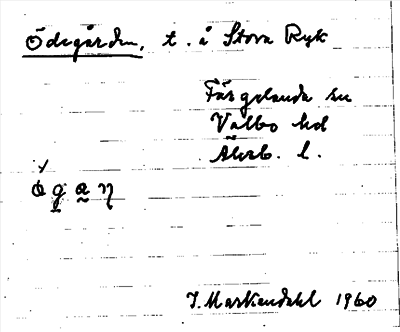 Ödegården, t. å Stora Ryk
Färgelanda sn
Valbo hd
Älvsb. l.
J. Martiendahl 1960